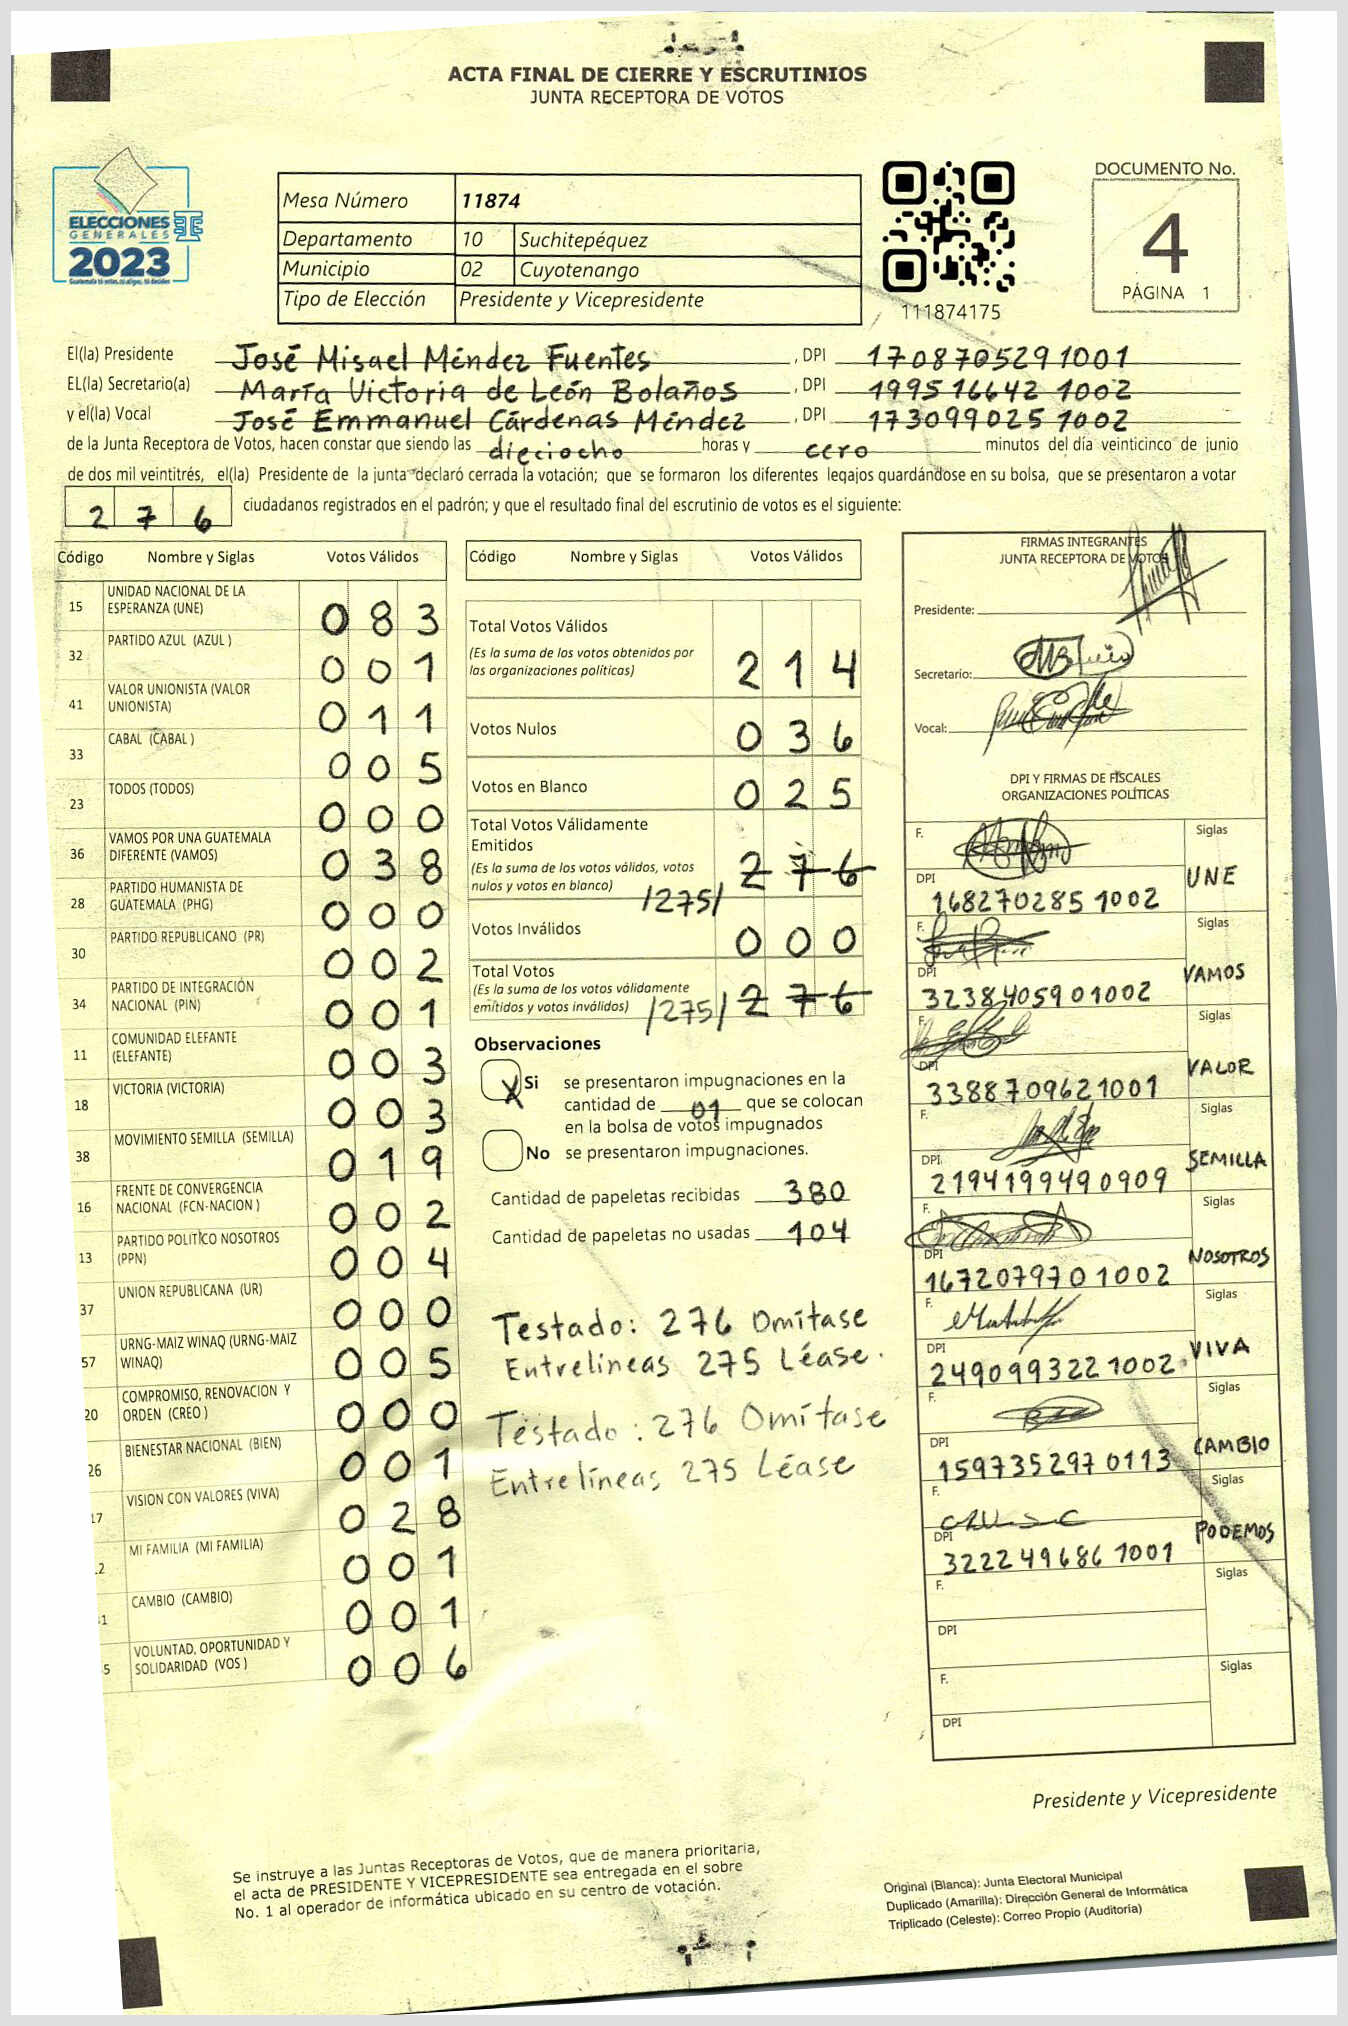 ACTA FINAL DE CIERRE Y ESCRUTINIOS
JUNTA RECEPTORA DE VOTOS
ELECCIONES
GENERALES
2023
Mesa Número 11874
Departamento 10 Suchitepéquez
Municipio 02 Cuyotenango
Tipo de Elección Presidente y Vicepresidente
111874175
DOCUMENTO No.
4
PÁGINA 1
El(la) Presidente José Misael Méndez Fuentes, DPI 1708705291001
EL(la) Secretario(a) María Victoria de León Bolaños, DPI 1995166421002
y el(la) Vocal José Emmanuel Cárdenas Méndez, DPI 1730990251002
de la Junta Receptora de Votos, hacen constar que siendo las dieciocho horas y cero minutos del día veinticinco de junio
de dos mil veintitrés, el(la) Presidente de la junta declaró cerrada la votación; que se formaron los diferentes legajos guardándose en su bolsa, que se presentaron a votar
276 ciudadanos registrados en el padrón; y que el resultado final del escrutinio de votos es el siguiente:
Código Nombre y Siglas Votos Válidos
15 UNIDAD NACIONAL DE LA ESPERANZA (UNE) 083
32 PARTIDO AZUL (AZUL ) 001
41 VALOR UNIONISTA (VALOR UNIONISTA) 011
33 CABAL (CABAL ) 005
23 TODOS (TODOS) 000
36 VAMOS POR UNA GUATEMALA DIFERENTE (VAMOS) 038
28 PARTIDO HUMANISTA DE GUATEMALA (PHG) 000
30 PARTIDO REPUBLICANO (PR) 002
34 PARTIDO DE INTEGRACIÓN NACIONAL (PIN) 001
11 COMUNIDAD ELEFANTE (ELEFANTE) 003
18 VICTORIA (VICTORIA) 003
38 MOVIMIENTO SEMILLA (SEMILLA) 019
16 FRENTE DE CONVERGENCIA NACIONAL (FCN-NACION ) 002
13 PARTIDO POLITICO NOSOTROS (PPN) 004
37 UNION REPUBLICANA (UR) 000
57 URNG-MAIZ WINAQ (URNG-MAIZ WINAQ) 005
20 COMPROMISO, RENOVACION Y ORDEN (CREO ) 000
26 BIENESTAR NACIONAL (BIEN) 001
17 VISION CON VALORES (VIVA) 028
2 MI FAMILIA (MI FAMILIA) 001
1 CAMBIO (CAMBIO) 001
5 VOLUNTAD, OPORTUNIDAD Y SOLIDARIDAD (VOS ) 006
Código Nombre y Siglas Votos Válidos
Total Votos Válidos
(Es la suma de los votos obtenidos por las organizaciones políticas) 214
Votos Nulos 036
Votos en Blanco 025
Total Votos Válidamente Emitidos
(Es la suma de los votos válidos, votos nulos y votos en blanco) /275/ 276
Votos Inválidos 000
Total Votos
(Es la suma de los votos válidamente emítidos y votos inválidos) /275/ 276
Observaciones
X Si se presentaron impugnaciones en la
cantidad de 01 que se colocan
en la bolsa de votos impugnados
No se presentaron impugnaciones.
Cantidad de papeletas recibidas 380
Cantidad de papeletas no usadas 104
Testado: 276 Omítase
Entrelíneas 275 Léase.
Testado: 276 Omítase
Entrelíneas 275 Léase
FIRMAS INTEGRANTES
JUNTA RECEPTORA DE VOTOS
Presidente:
Secretario:
Vocal:
DPI Y FIRMAS DE FISCALES
ORGANIZACIONES POLÍTICAS
F. Siglas
DPI 1682702851002 UNE
F. Siglas
DPI 3238405901002 VAMOS
F. Siglas
DPI 3388709621001 VALOR
F. Siglas
DPI 2194199490909 SEMILLA
F. Siglas
DPI 1672079701002 NOSOTROS
F. Siglas
DPI 2490993221002 VIVA
F. Siglas
DPI 1597352970113 CAMBIO
F. Siglas
DPI 3222496861001 PODEMOS
F. Siglas
DPI
F. Siglas
DPI
Presidente y Vicepresidente
Se instruye a las Juntas Receptoras de Votos, que de manera prioritaria,
el acta de PRESIDENTE Y VICEPRESIDENTE sea entregada en el sobre
No. 1 al operador de informática ubicado en su centro de votación.
Original (Blanca): Junta Electoral Municipal
Duplicado (Amarilla): Dirección General de Informática
Triplicado (Celeste): Correo Propio (Auditoría)